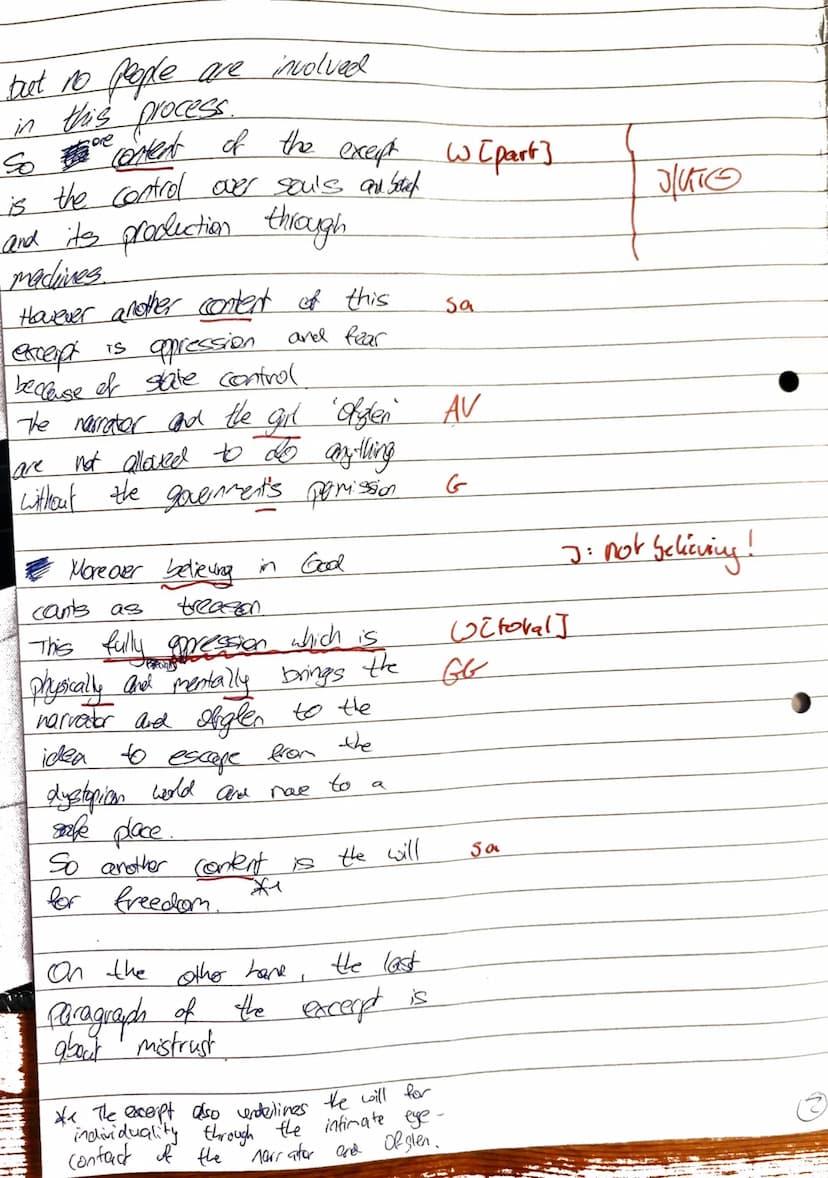 but no people are involved
in this process.
So one content of the exept W [part]
is the control over souls and belief
and its production through
machines.
However another content of this sa
except is oppression and fear
because of state control.
The narrator and the girl 'Ofglen' AV
are not allowed to do anything
without the government's permission G
Moreover believing in God J: not believing!
counts as treason
This fully oppression which is W[total]
physically and mentally brings the GG
narrator and Ofglen to the
idea to escape from the
dystopian world and move to a
safe place.
So another content is the will sa
for freedom. *1
On the other hane, the last
paragraph of the excerpt is
about mistrust
*1 The excerpt also underlines the will for
individuality through the intimate eye-
contact of the narrator and Ofglen.
2